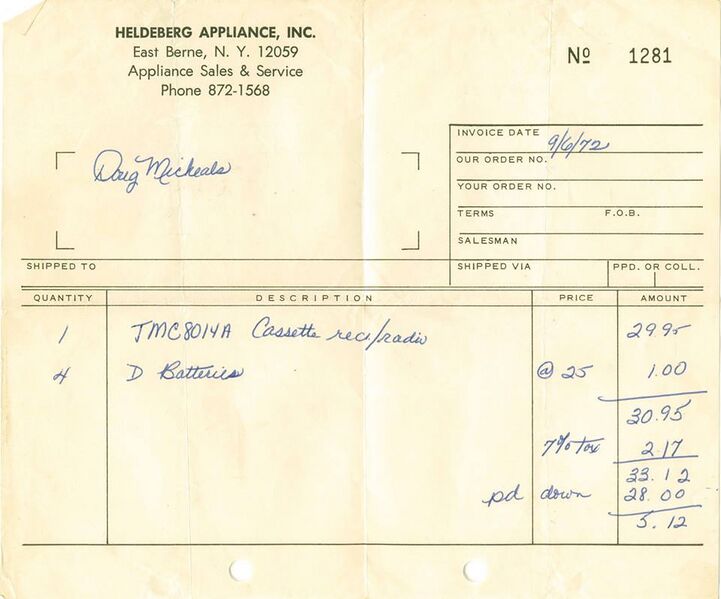 HELDEBERG APPLIANCE, INC.
East Berne, N. Y. 12059
Appliance Sales & Service
Phone 872-1568
Nº 1281
INVOICE DATE 9/6/72
OUR ORDER NO.
YOUR ORDER NO.
TERMS F.O.B.
SALESMAN
Doug Micheals
SHIPPED TO SHIPPED VIA PPD. OR COLL.
QUANTITY DESCRIPTION PRICE AMOUNT
1 TMC8014A Cassette rec/radio 29.95
4 D Batteries @ 25 1.00
30.95
7% Tax 2.17
33.12
pd down 28.00
5.12